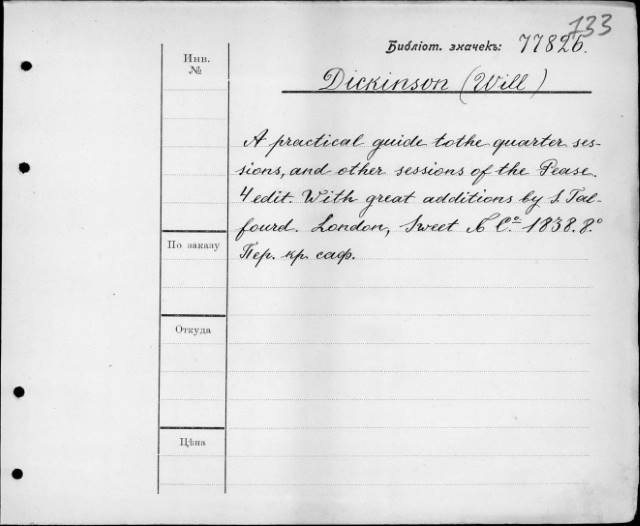 133
Библіот. значекъ: 77826.
Инв.
№
Dickinson (Will)
A practical guide to the quarter ses-
sions, and other sessions of the Pease.
4 edit. With great additions by S. Tal-
fourd. London, Sweet & C.º 1838. 8.º
Пер. кр. саф.
По заказу
Откуда
Цѣна